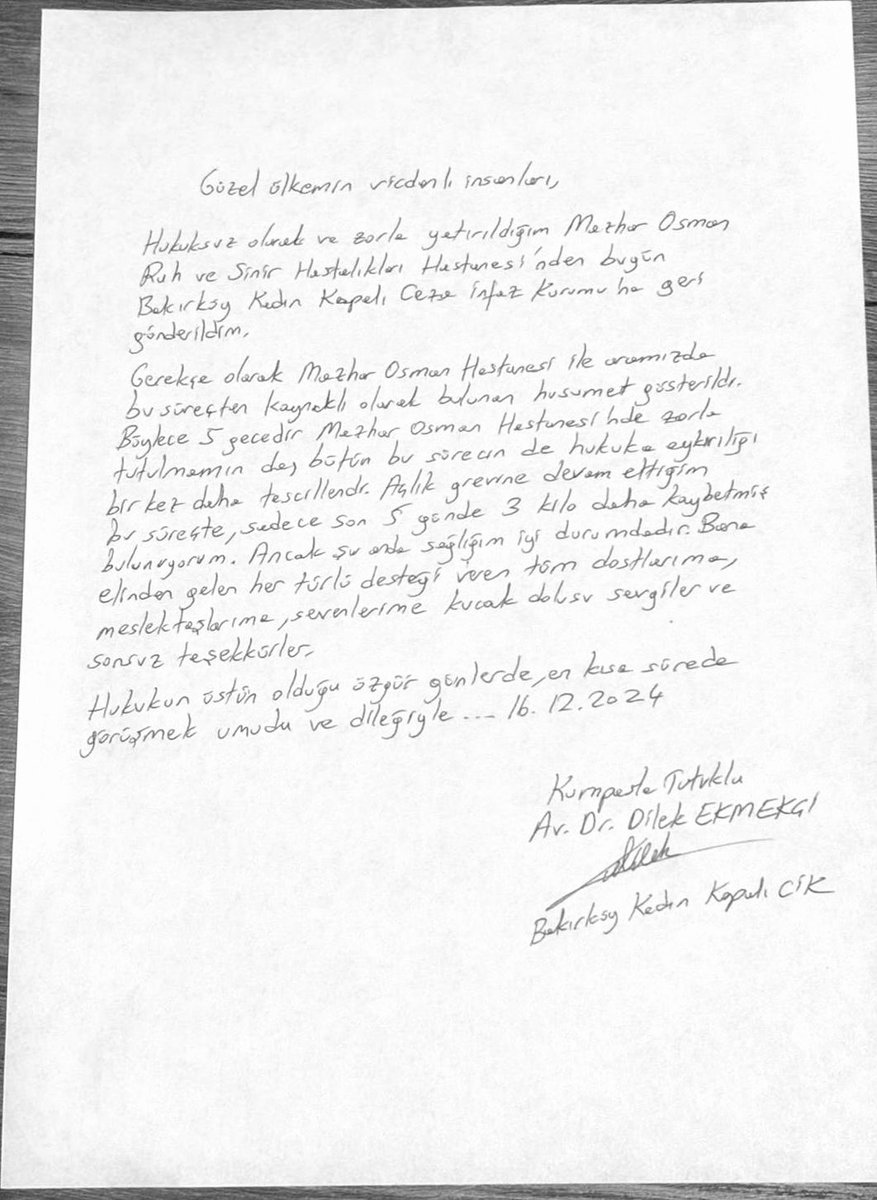 Güzel ülkemin vicdanlı insanları,
Hukuksuz olarak ve zorla yatırıldığım Mazhar Osman
Ruh ve Sinir Hastalıkları Hastanesi'nden bugün
Bakırköy Kadın Kapalı Ceza İnfaz Kurumu'na geri
gönderildim.
Gerekçe olarak Mazhar Osman Hastanesi ile aramızda
bu süreçten kaynaklı olarak bulunan husumet gösterildi.
Böylece 5 gecedir Mazhar Osman Hastanesi'nde zorla
tutulmamın da, bütün bu sürecin de hukuka aykırılığı
bir kez daha tescillendi. Açlık grevine devam ettiğim
bu süreçte, sadece son 5 günde 3 kilo daha kaybetmiş
bulunuyorum. Ancak şu anda sağlığım iyi durumdadır. Bana
elinden gelen her türlü desteği veren tüm dostlarıma,
meslektaşlarıma, sevenlerime kucak dolusu sevgiler ve
sonsuz teşekkürler.
Hukukun üstün olduğu özgür günlerde, en kısa sürede
görüşmek umudu ve dileğiyle ... 16.12.2024
Kumpasla Tutuklu
Av. Dr. Dilek EKMEKÇİ
Dilek
Bakırköy Kadın Kapalı CİK